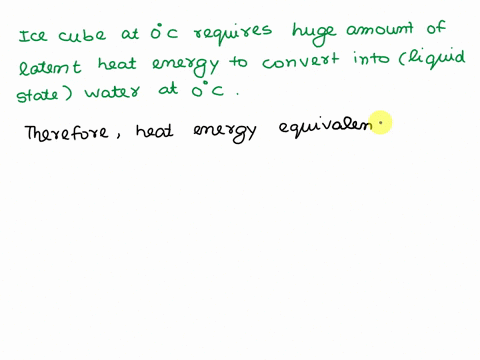 Ice cube at 0°c requires huge amount of
latent heat energy to convert into (liquid
state) water at 0°c.
Therefore, heat energy equivalen